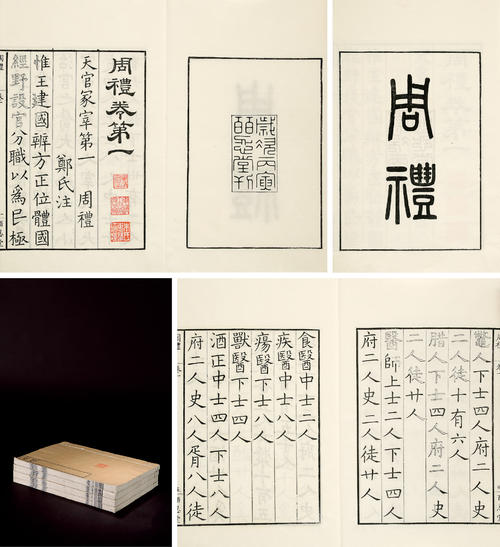 周禮
歲次丙寅
皕忍堂刊
周禮卷第一
天官冢宰第一 周禮
鄭氏注
惟王建國辨方正位體國
經野設官分職以為民極
鼈人下士四人府二人史
二人徒十有六人
腊人下士四人府二人史
二人徒廿人
醫師上士二人下士四人
府二人史二人徒廿人
食醫中士二人
疾醫中士八人
瘍醫下士八人
獸醫下士四人
酒正中士四人下士八人
府二人史八人胥八人徒